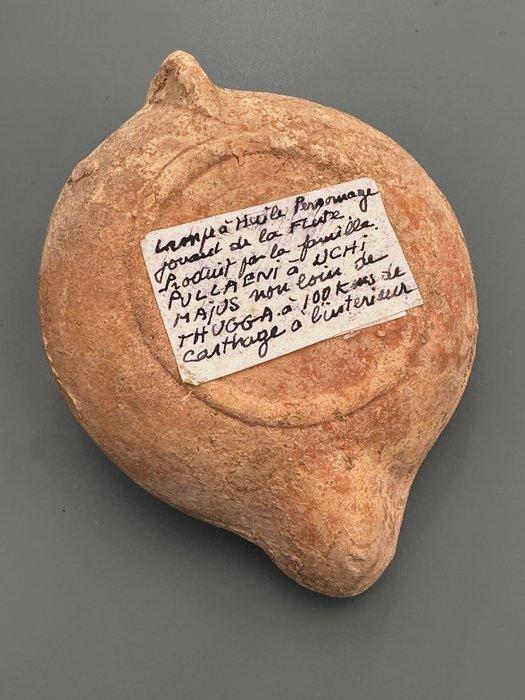 Lampe à Huile Personnage
jouant de la Flute.
Produit par la famille
PULLAENI à UCHI
MAJUS non loin de
THUGGA à 100 Kms de
Carthage à l'interieur